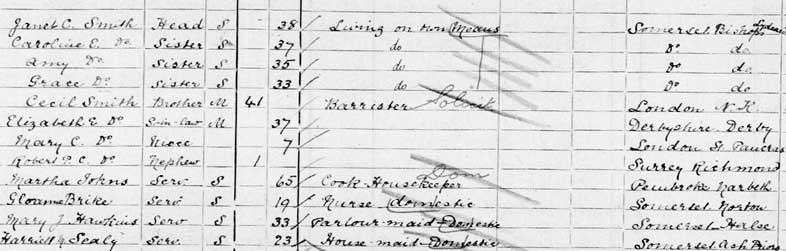 Janet C. Smith Head S 38 Living on own Means Somerset Bishops Lydeard
Caroline E. Do Sister S 37 do Do do
Amy Do Sister S 35 do Do do
Grace Do Sister S 33 do Do do
Cecil Smith Brother M 41 Barrister Solicit London N.K.
Elizabeth E. Do S-in-law M 37 Derbyshire Derby
Mary C. Do Niece 7 London St Pancras
Robert P. C. Do Nephew 1 Surrey Richmond
Dom
Martha Johns Serv S 65 Cook-Housekeeper Pembroke Narbeth
Brike Serv. S 19 Nurse domestic Somerset Norton
Mary J. Hawkins Serv S 33 Parlour-maid-Domestic Somerset Halse
Harriett M Sealy Serv S 23 House-maid-Domestic Somerset Ash Priors